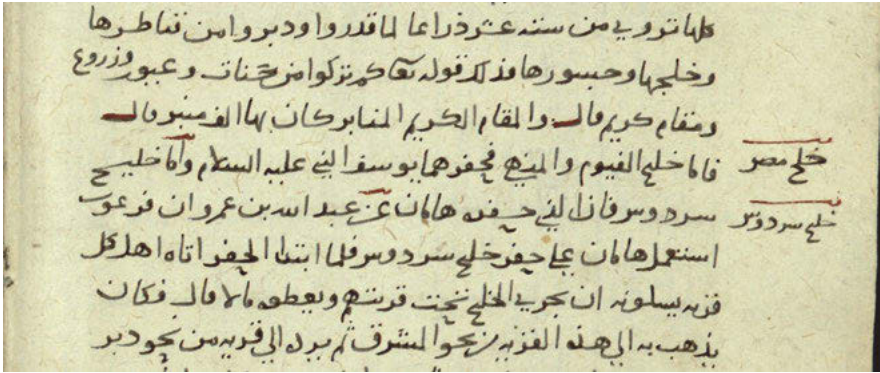 كلها تروي من ستة عشر ذراعا لما قدروا ودبروا من قناطرها
وخلجها وجسورها فذلك قوله تعا كم تركوا من جنات وعيون وزروع
ومقام كريم قال والمقام الكريم المنابر كان بها الف منبر قال
خلج مصر
فاما خليج الفيوم والمنهي فحفرهما يوسف النبي عليه السلام واما خليج
خلج سردوس
سردوس فان الذي حفره هامان عن عبد الله بن عمرو ان فرعون
استعمل هامان على حفر خليج سردوس فلما ابتدا لحفر اتاه اهل كل
قرية يسلونه ان يجري الخليج تحت قريتهم ويعطوه مالا قال فكان
يذهب به الي هذه القرية من نحو المشرق ثم يرده الي قرية من نحو دبر